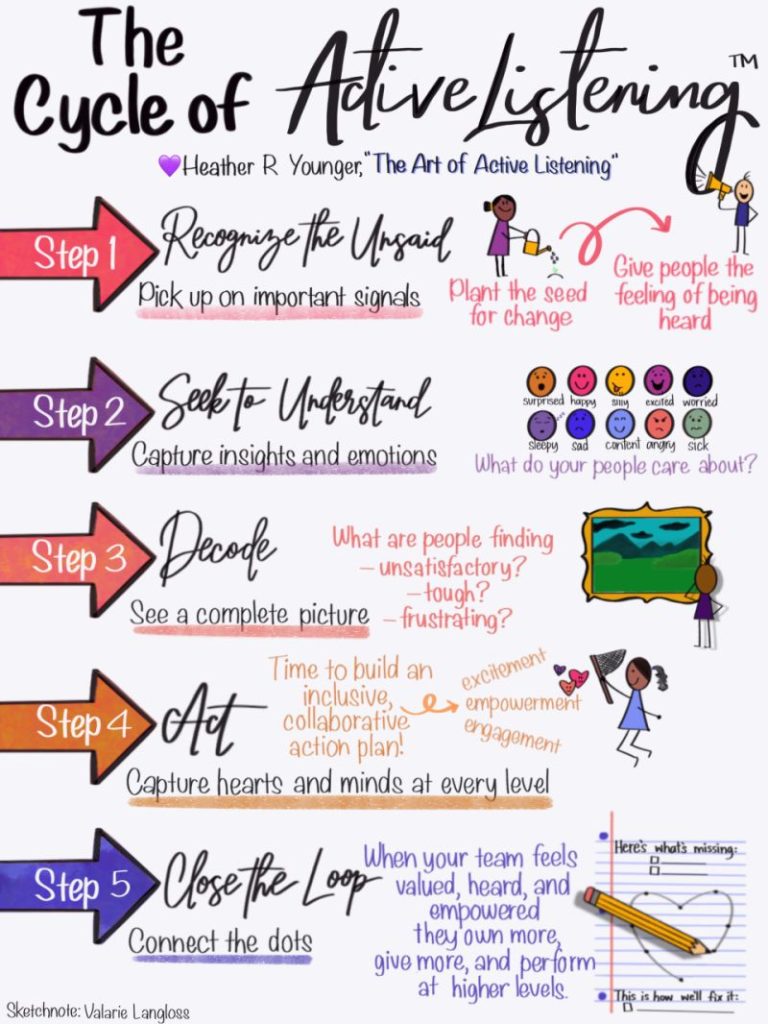 The
Cycle of Active Listening™
💜Heather R Younger, "The Art of Active Listening"
Step 1
Recognize the Unsaid
Pick up on important signals
Plant the seed
for change
Give people the
feeling of being
heard
Step 2
Seek to Understand
Capture insights and emotions
surprised happy silly excited worried
sleepy sad content angry sick
What do your people care about?
Step 3
Decode
See a complete picture
What are people finding
– unsatisfactory?
– tough?
– frustrating?
Step 4
Act
Time to build an
inclusive,
collaborative
action plan!
excitement
empowerment
engagement
Capture hearts and minds at every level
Step 5
Close the Loop
Connect the dots
When your team feels
valued, heard, and
empowered
they own more,
give more, and perform
at higher levels.
Here's what's missing:
This is how we'll fix it:
Sketchnote: Valarie Langloss